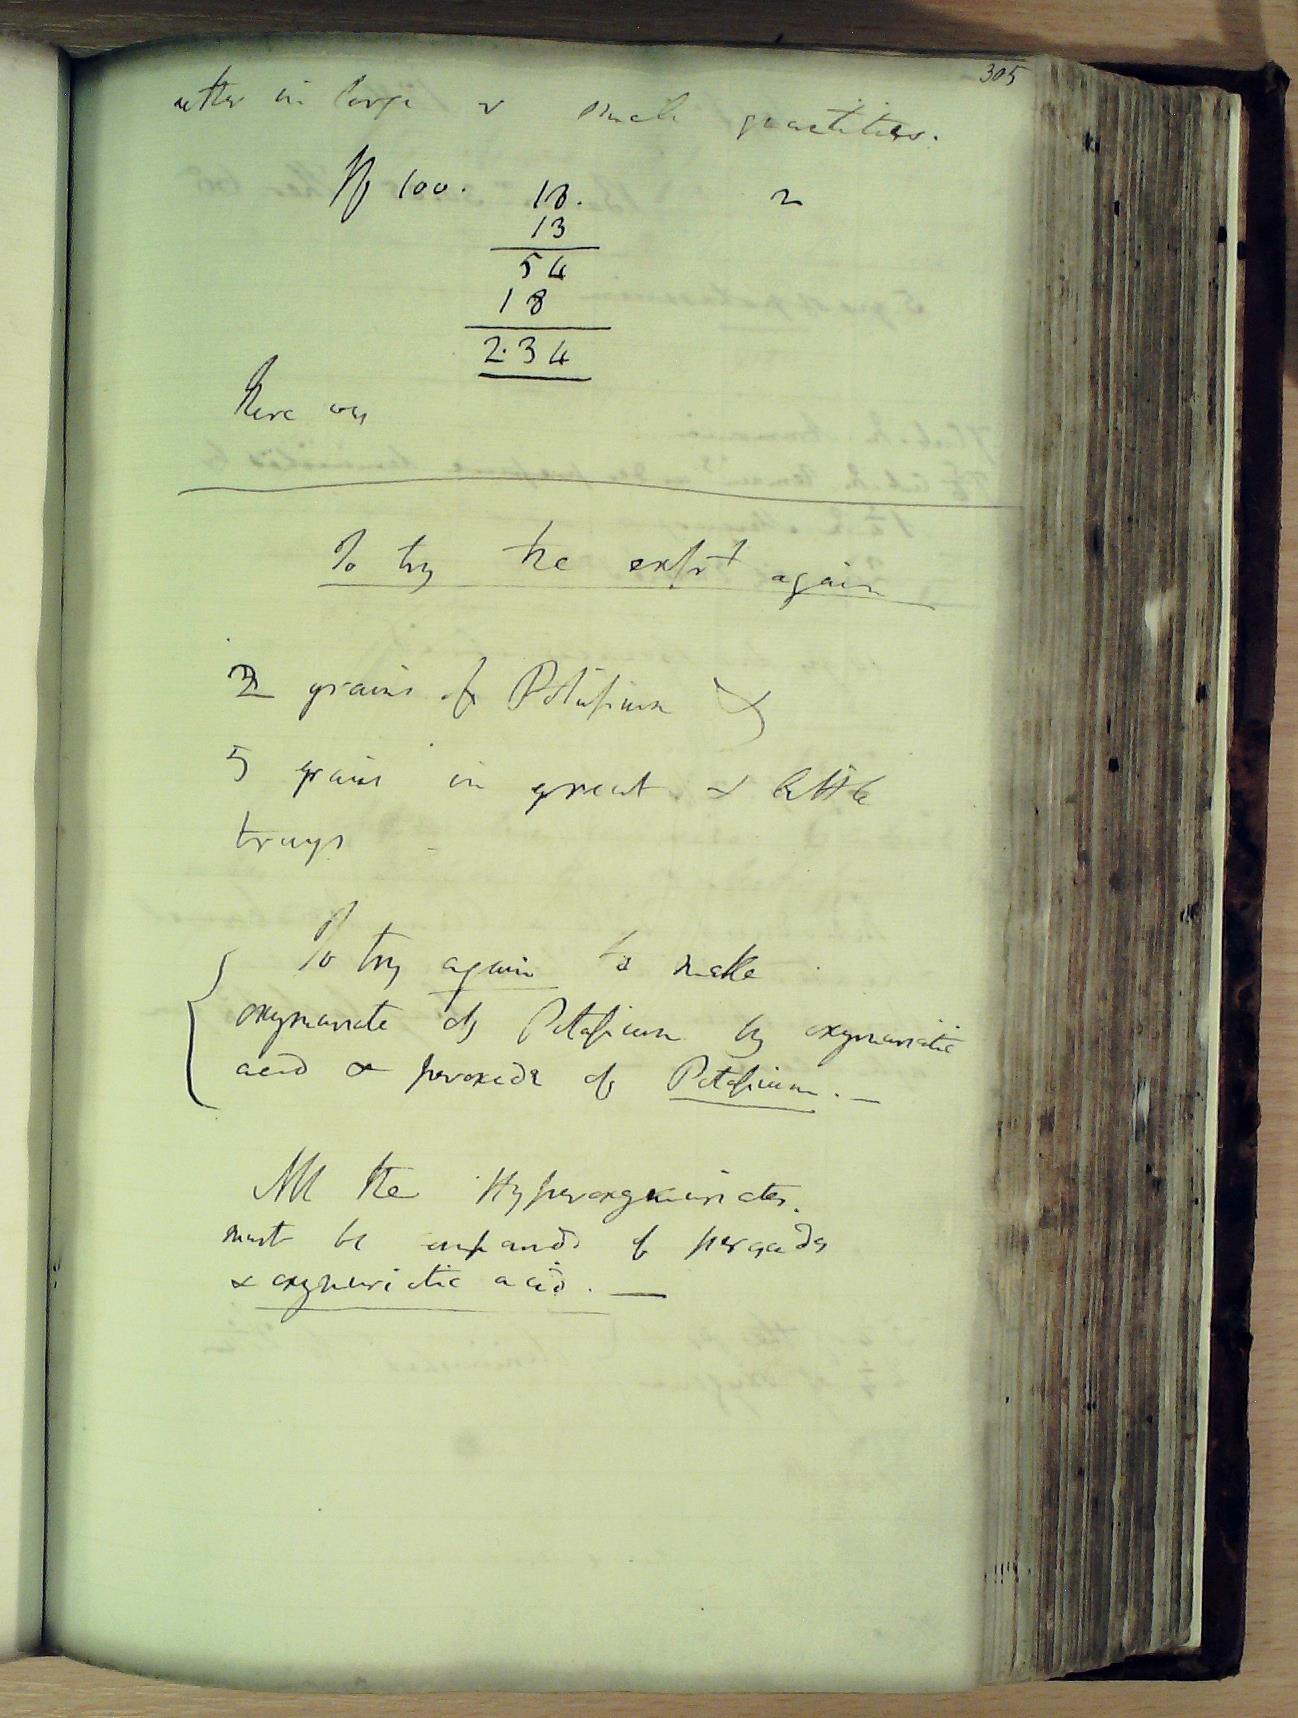 305
either in large or small quantities.
If 100. 18. 2
13
54
18
2.34
there was
To try the expt again
2 grains of Potassium &
5 grains in great & little
trays
To try again to make
oxymuriate of Potassium by oxymuriatic
acid & peroxide of Potassium. —
All the Hyperoxymuriates.
must be compounds of peroxides
& oxymuriatic acid. —